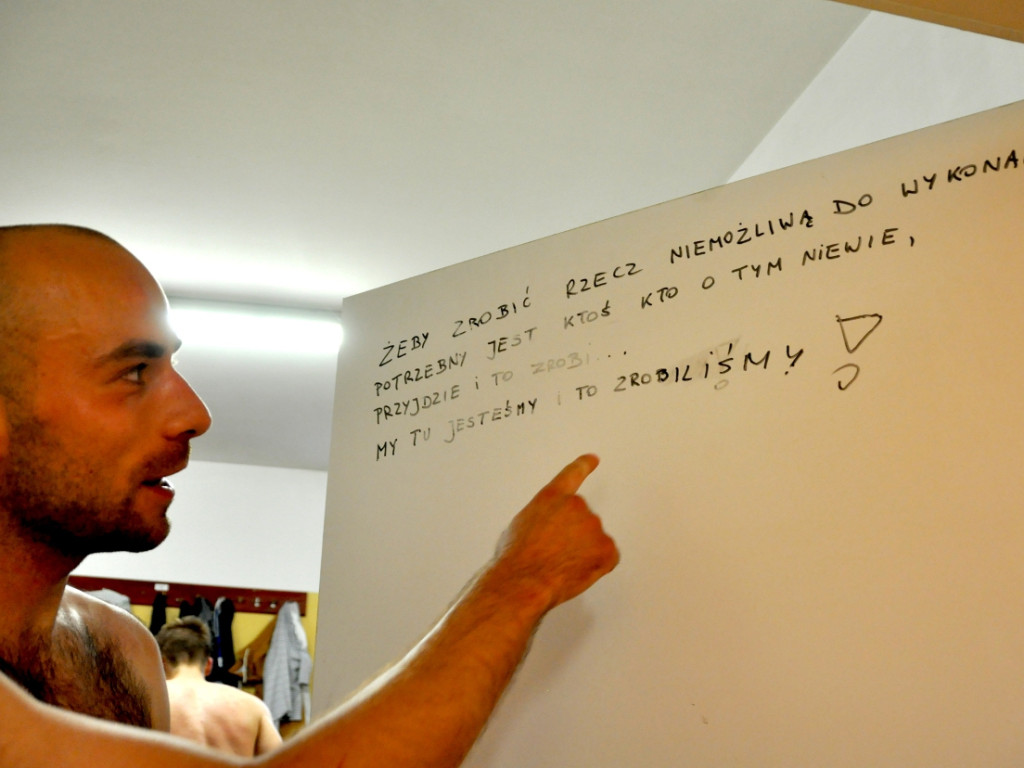 ŻEBY ZROBIĆ RZECZ NIEMOŻLIWĄ DO WYKONA
POTRZEBNY JEST KTOŚ KTO O TYM NIEWIE,
PRZYJDZIE i TO ZROBI...
MY TU JESTEŚMY i TO ZROBILIŚMY!